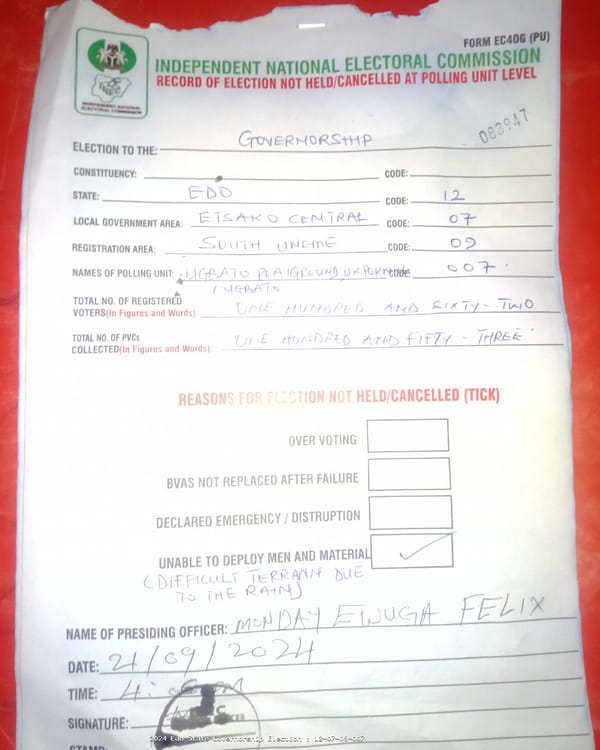 FORM EC40G (PU)
INDEPENDENT NATIONAL ELECTORAL COMMISSION
RECORD OF ELECTION NOT HELD/CANCELLED AT POLLING UNIT LEVEL
INDEPENDENT NATIONAL
ELECTORAL COMMISSION
083947
ELECTION TO THE: GOVERNORSHIP
CONSTITUENCY: CODE:
STATE: EDO CODE: 12
LOCAL GOVERNMENT AREA: ETSAKO CENTRAL CODE: 07
REGISTRATION AREA: SOUTH UNEME CODE: 09
NAMES OF POLLING UNIT: UGBATO PLAYGROUND, CODE: 007
/UGBATO
TOTAL NO. OF REGISTERED
VOTERS(In Figures and Words): ONE HUNDRED AND SIXTY-TWO
TOTAL NO. OF PVCs
COLLECTED(In Figures and Words): ONE HUNDRED AND FIFTY-THREE
REASONS FOR ELECTION NOT HELD/CANCELLED (TICK)
OVER VOTING
BVAS NOT REPLACED AFTER FAILURE
DECLARED EMERGENCY / DISTRUPTION
UNABLE TO DEPLOY MEN AND MATERIAL ✓
(DIFFICULT TERRAIN DUE
TO THE RAIN)
NAME OF PRESIDING OFFICER: MONDAY EWUGA FELIX
DATE: 21/09/2024
TIME:
SIGNATURE:
2024 Edo State Governorship Election : 12-07-09-007
STAMP: